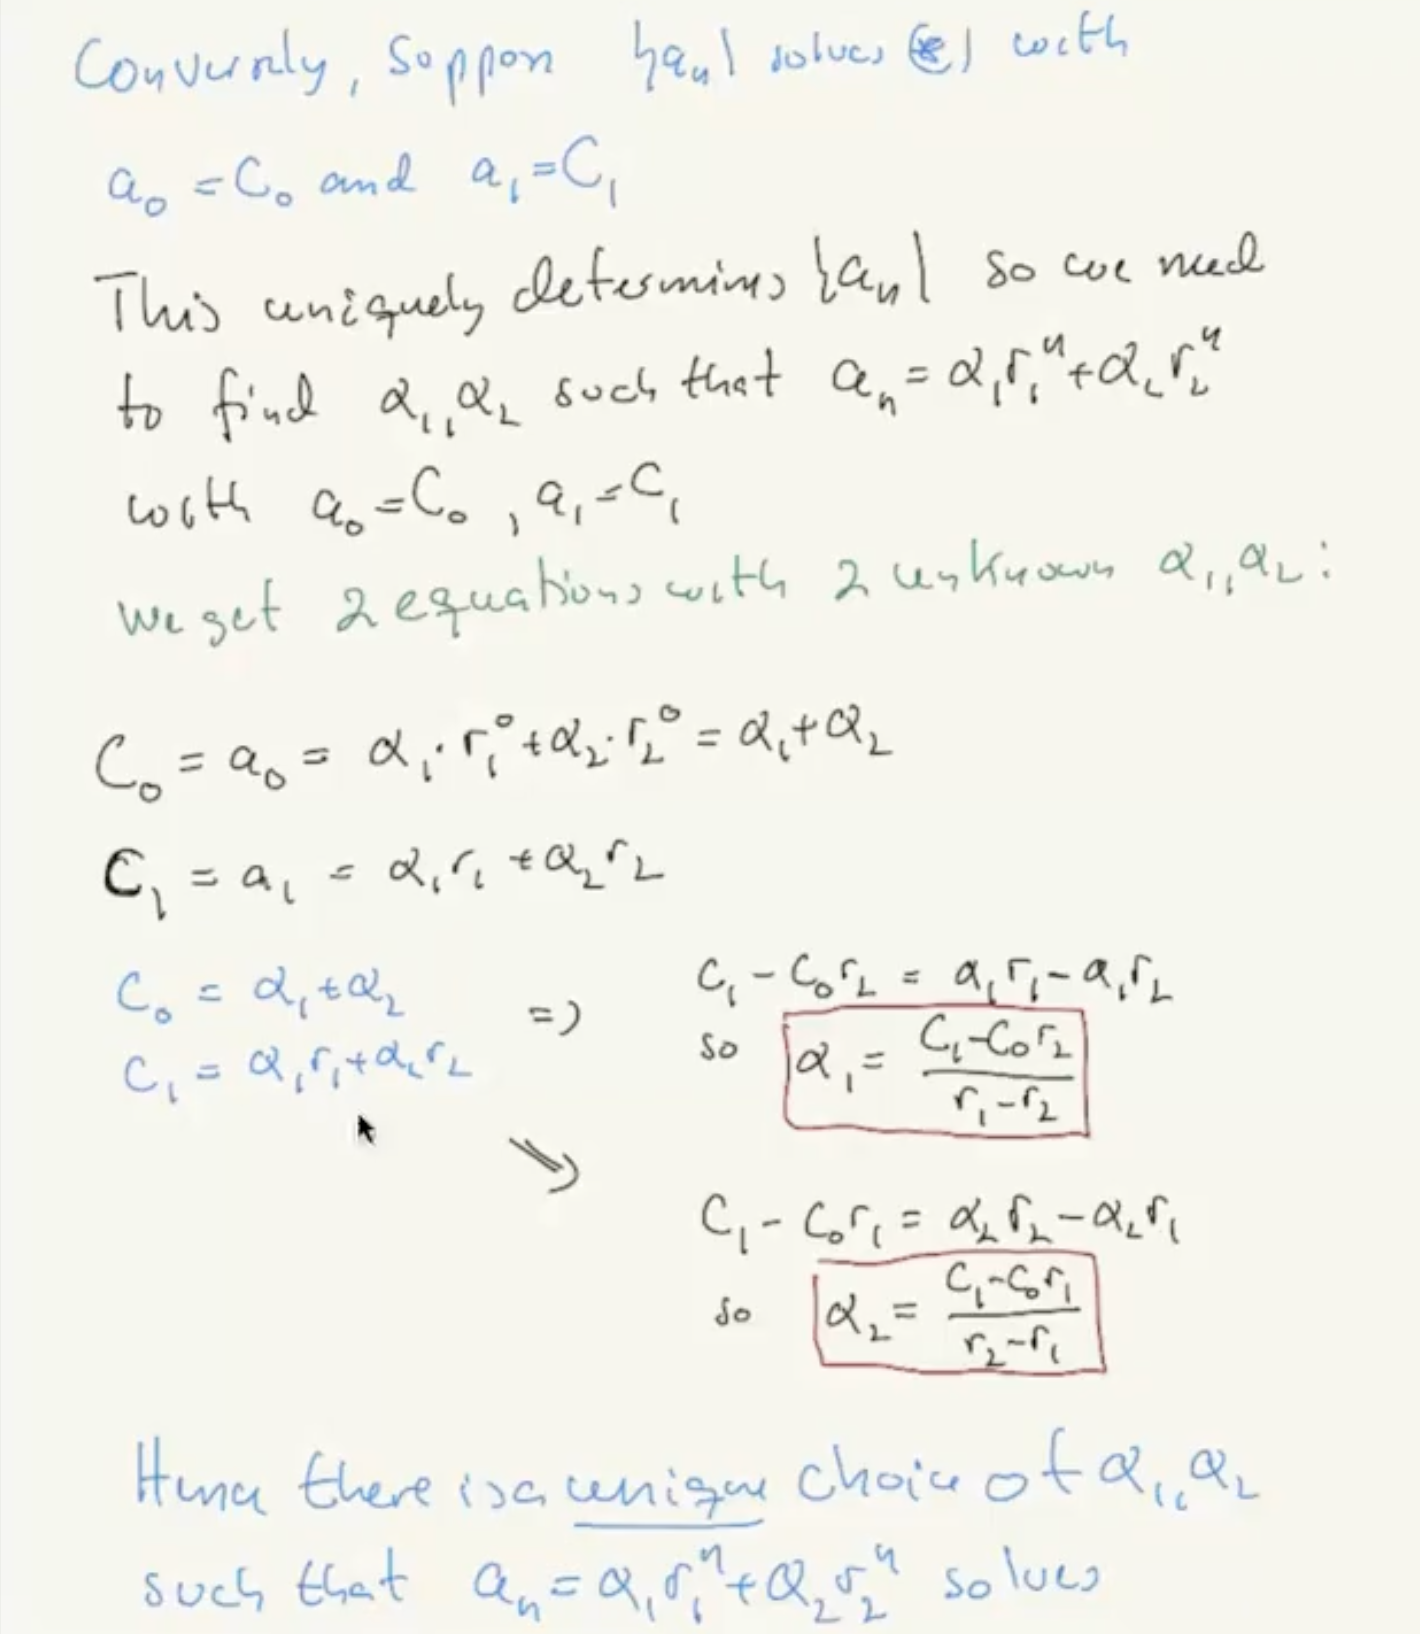 Conversely, suppose {aₙ} solves (*) with
a₀ = C₀ and a₁ = C₁
This uniquely determines {aₙ} so we need
to find α₁, α₂ such that aₙ = α₁r₁ⁿ + α₂r₂ⁿ
with a₀ = C₀, a₁ = C₁
we get 2 equations with 2 unknown α₁, α₂:
C₀ = a₀ = α₁·r₁⁰ + α₂·r₂⁰ = α₁ + α₂
C₁ = a₁ = α₁r₁ + α₂r₂
C₀ = α₁ + α₂
C₁ = α₁r₁ + α₂r₂
⇒ C₁ - C₀r₂ = α₁r₁ - α₁r₂
so α₁ = (C₁ - C₀r₂)/(r₁ - r₂)
⇒ C₁ - C₀r₁ = α₂r₂ - α₂r₁
so α₂ = (C₁ - C₀r₁)/(r₂ - r₁)
Hence there is a unique choice of α₁, α₂
such that aₙ = α₁r₁ⁿ + α₂r₂ⁿ solves